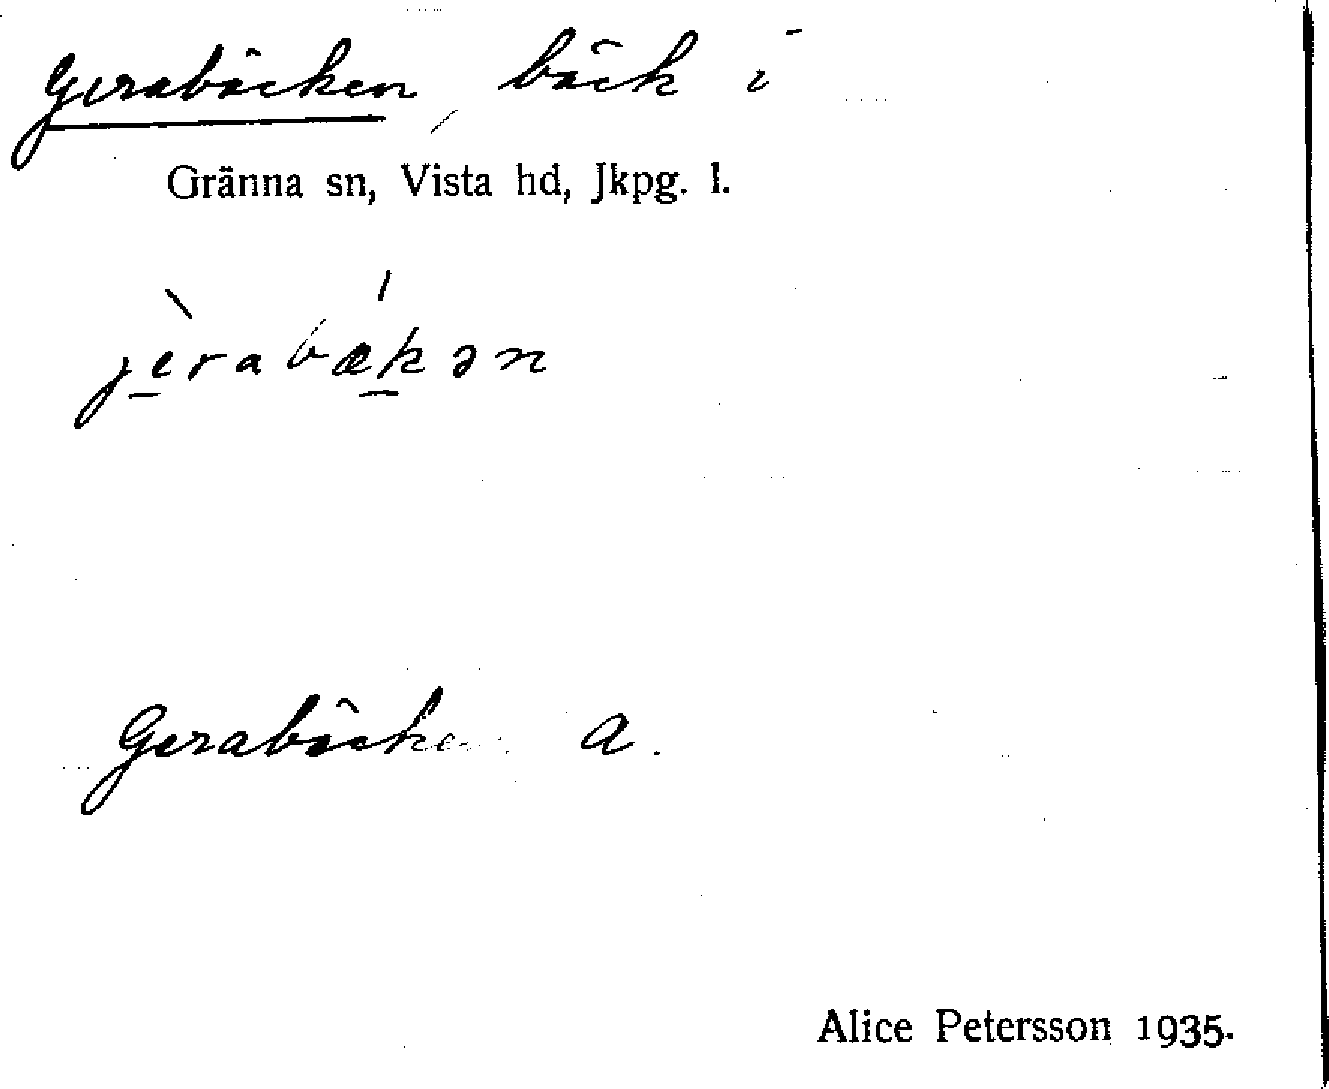 Gerabäcken, bäck i
Gränna sn, Vista hd, Jkpg. l.
jèrabǽkən
Gerabäcken a.
Alice Petersson 1935.